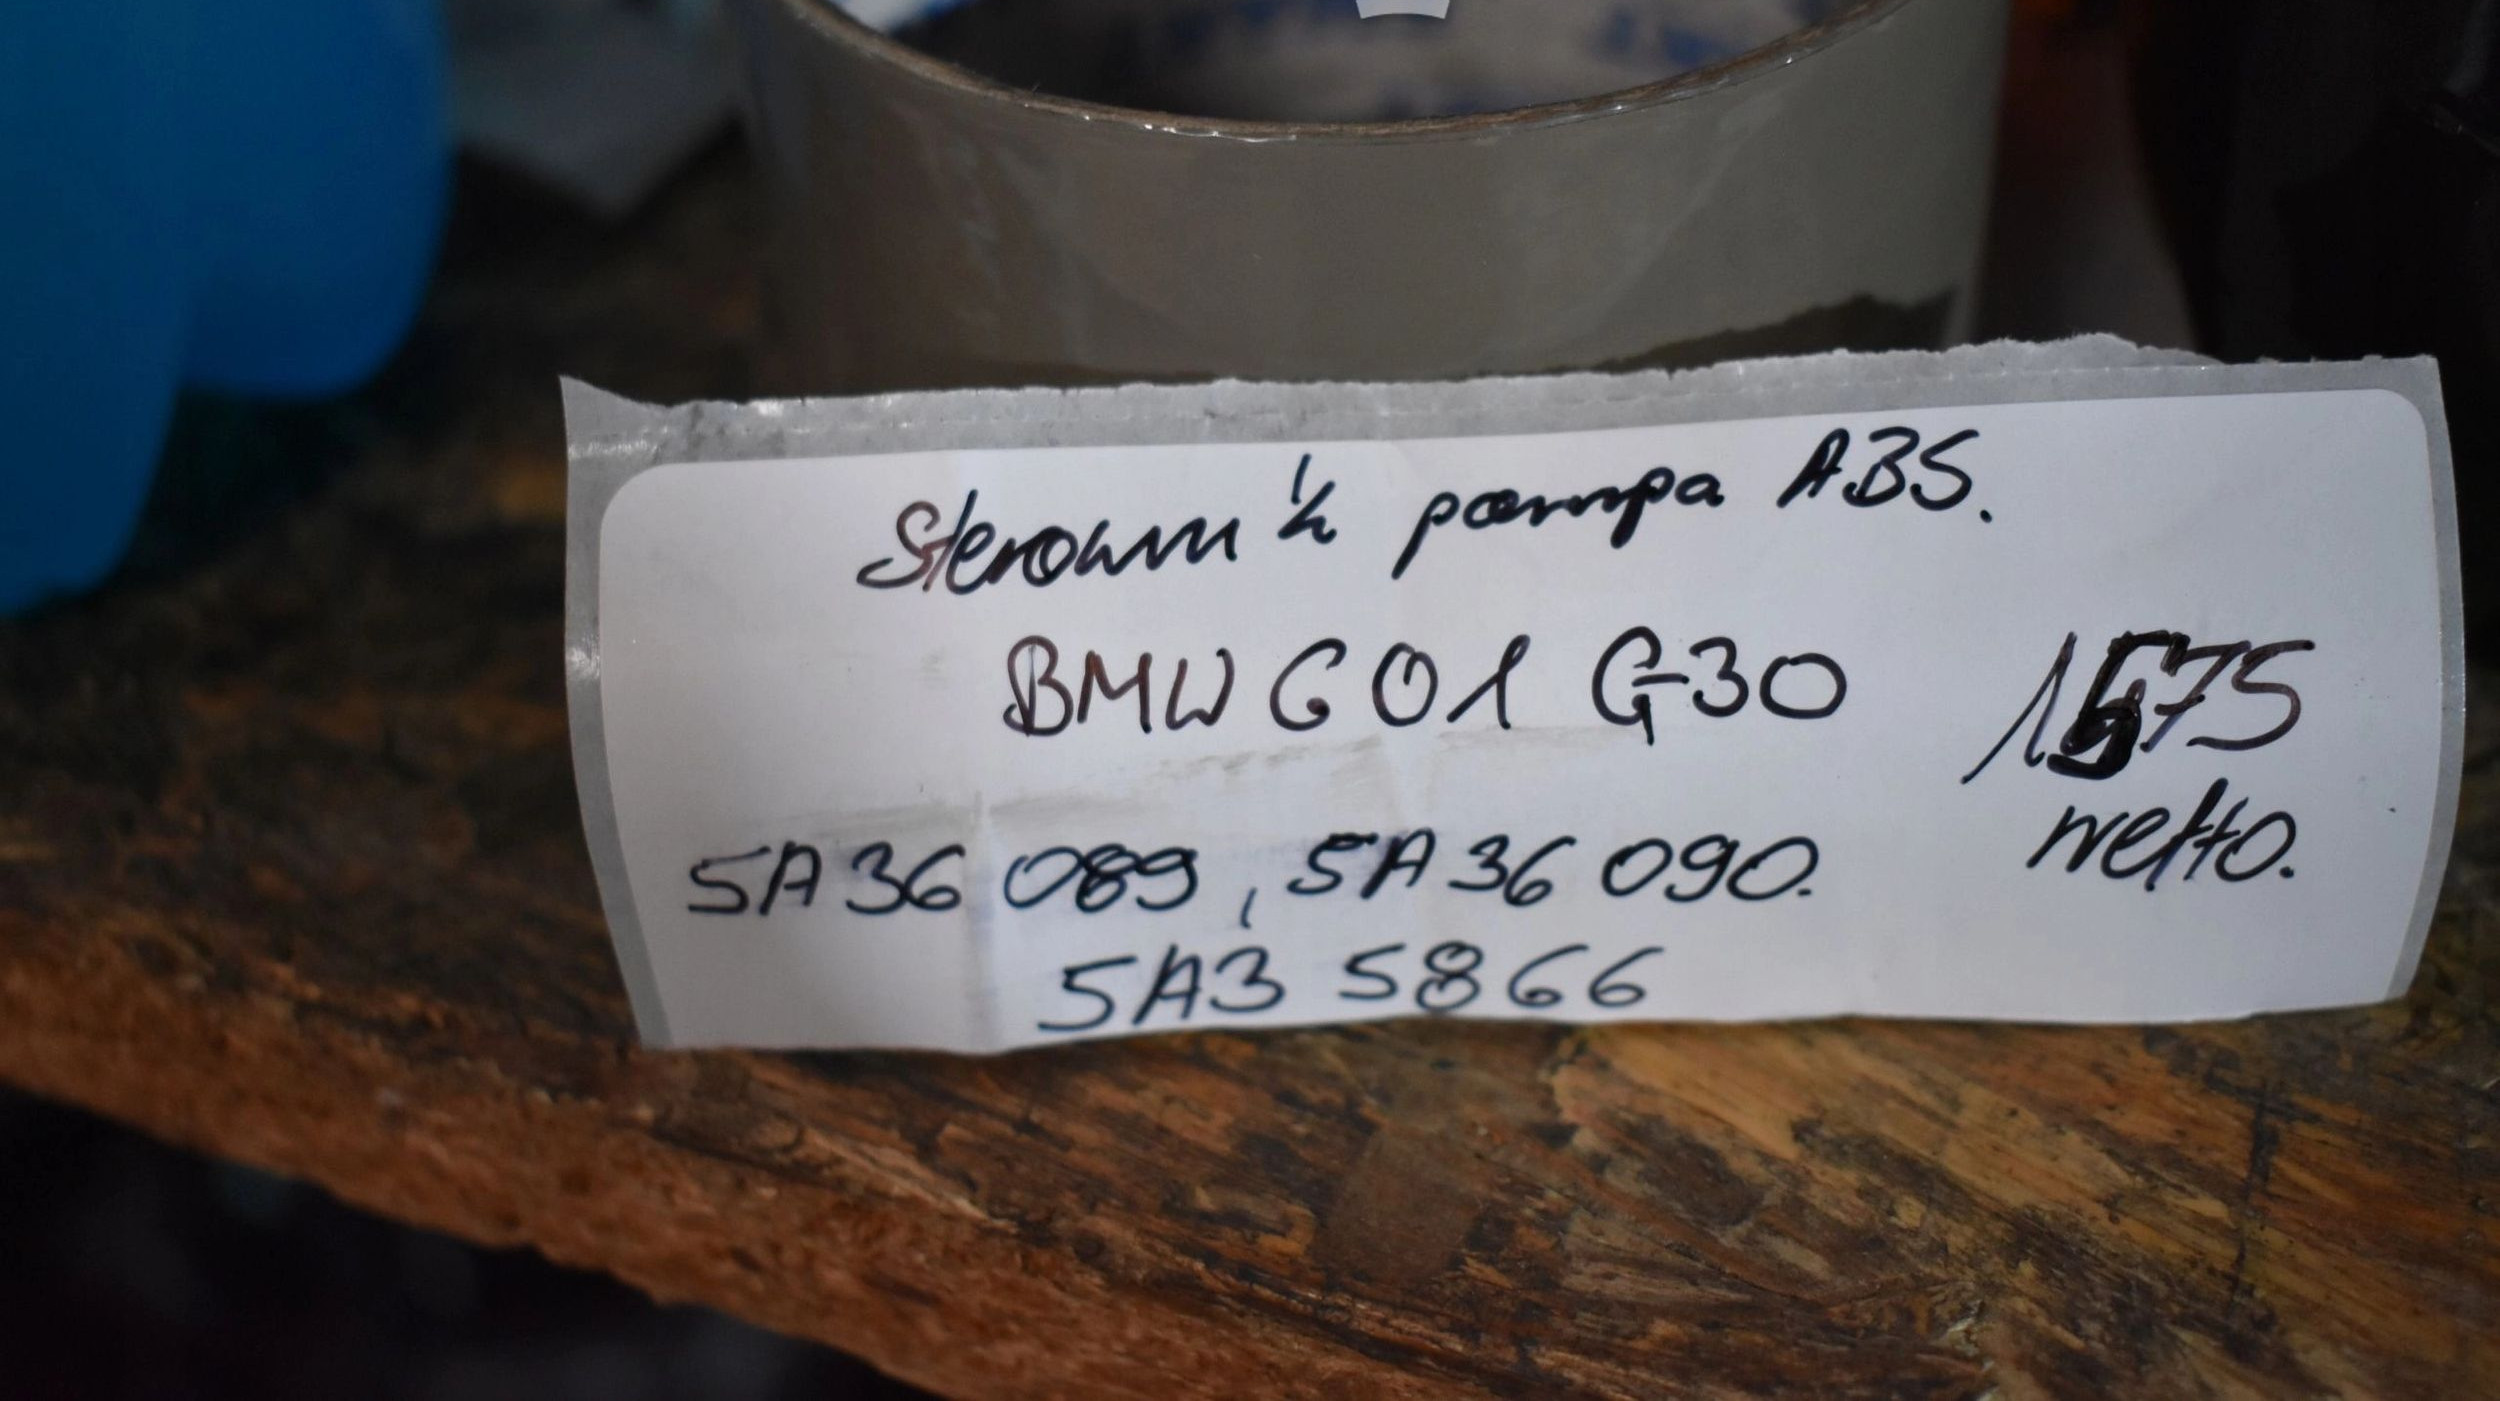 Sterownik pompa ABS.
BMW G01 G30
1575
netto.
5A36089, 5A36090.
5A35866